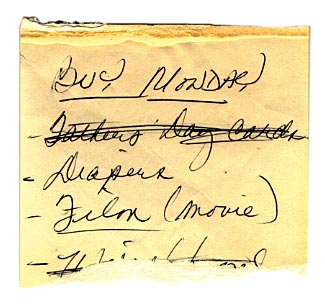 BUY MONDAY
- Fathers Day cards
- Diapers
- Film (movie)
-